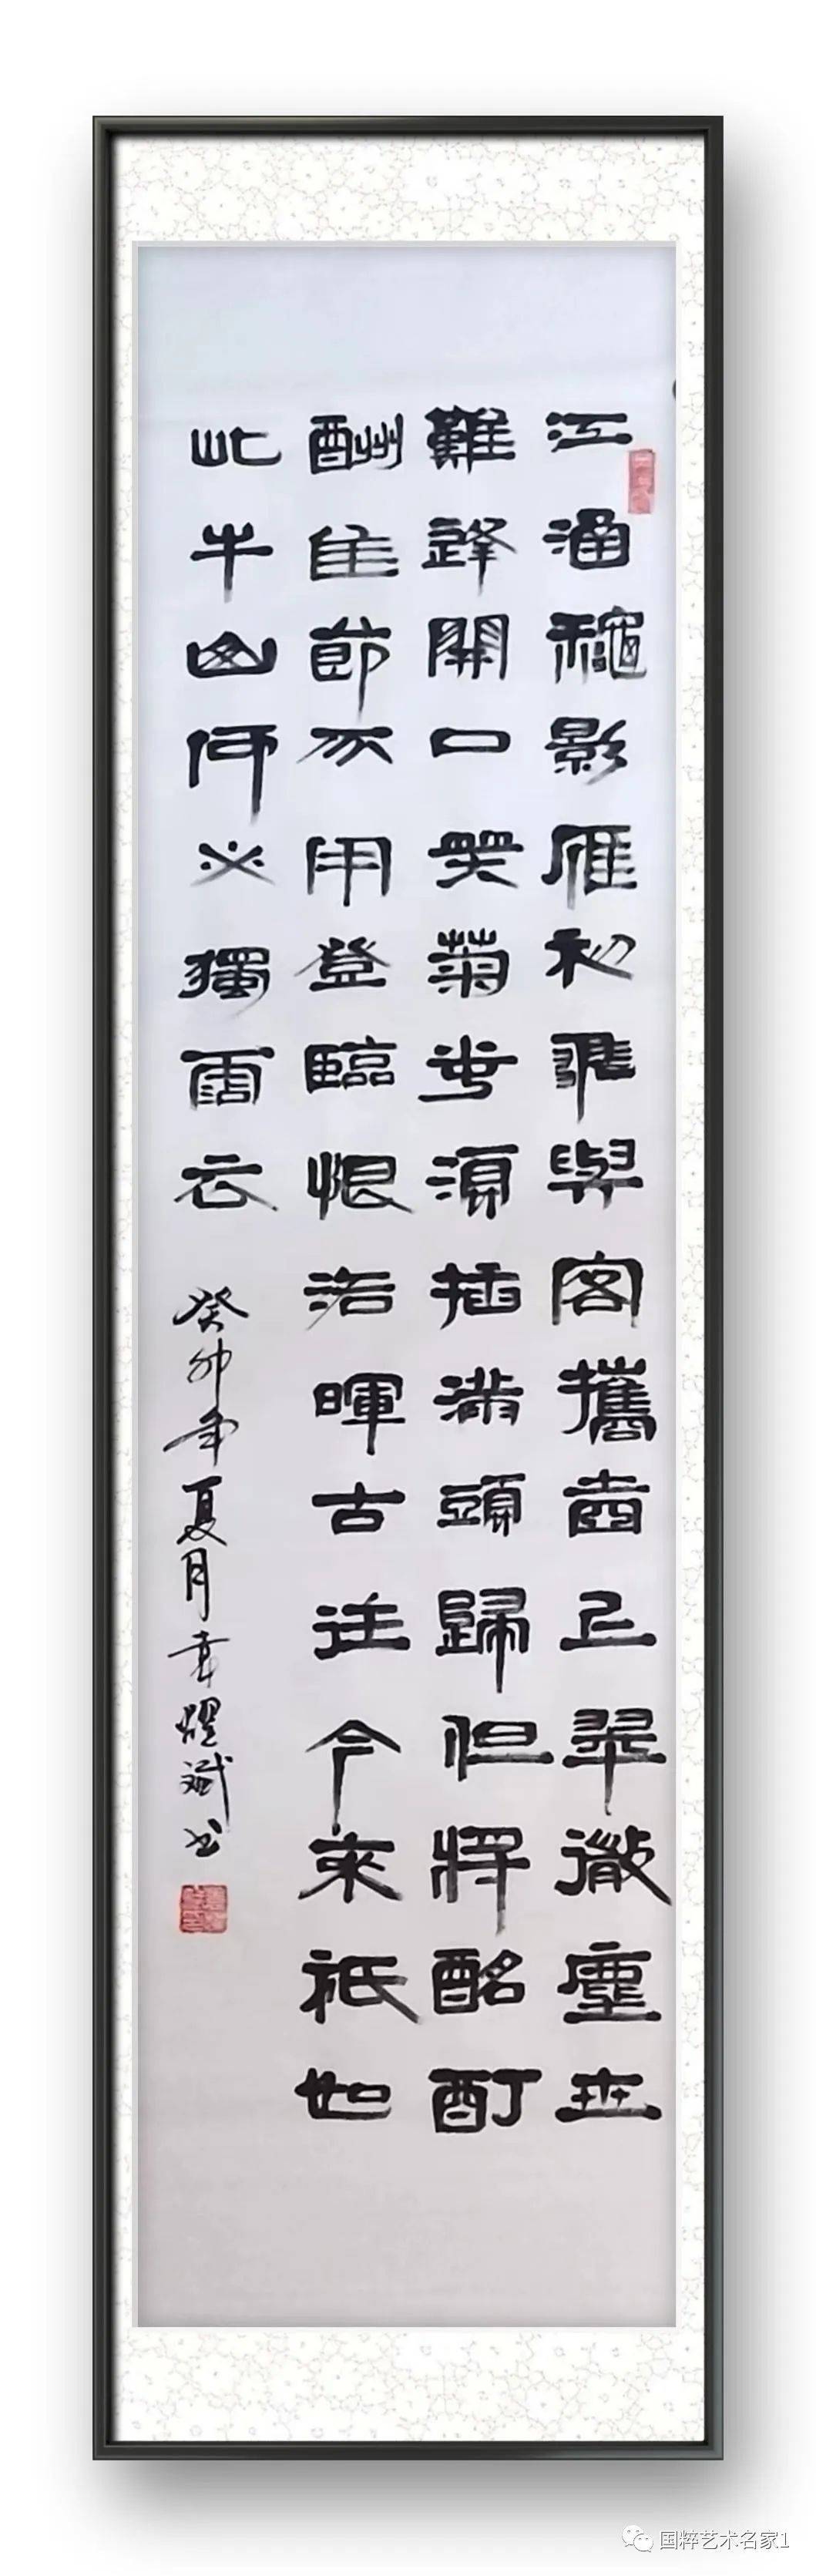 江涵龝影雁初飛與客攜壺上翠微塵世
難逢開口笑菊花須插滿頭歸但將酩酊
酬佳節不用登臨恨洛暉古往今來祇如
此牛山何必獨霑衣
癸卯年夏月耀斌书
国粹艺术名家1